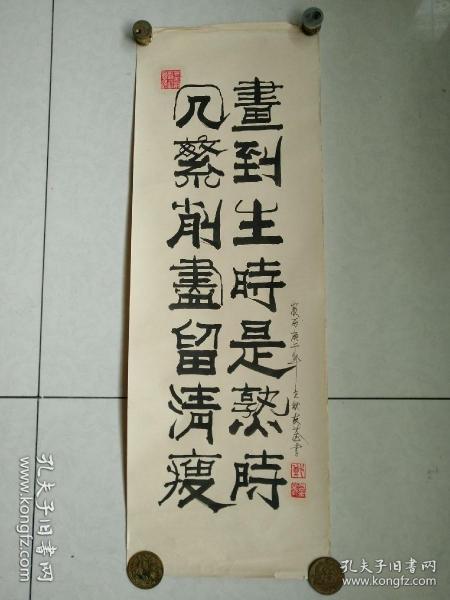 冗繁削盡留清瘦
畫到生時是熟時
庚午年
書
孔夫子旧书网
孔夫子旧书网
www.kongfz.com